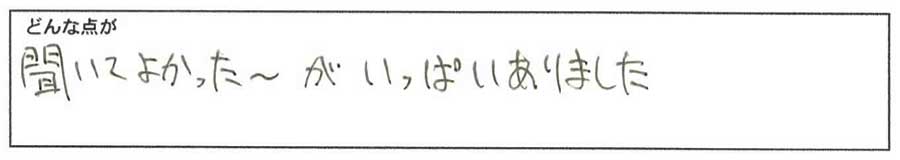 どんな点が
聞いてよかった～ が いっぱいありました